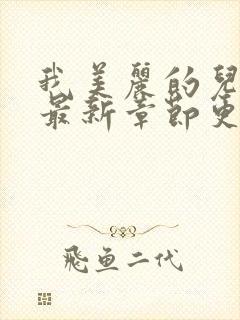 我美麗的兒
最新章節更
飛鱼二代